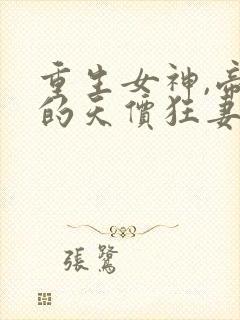 重生女神,帝
的天價狂妻
張鷺